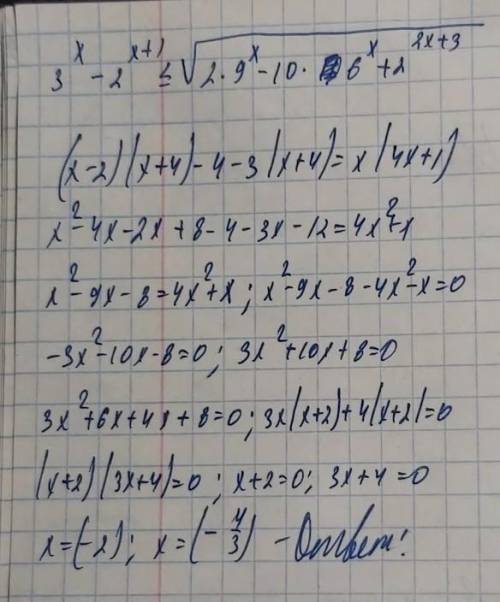 3^x - 2^{x+1} ≤ √(2·9^x - 10· 6^x + 2^{2x+3})
(x-2)(x+4)-4-3(x+4)=x(4x+1)
x²-4x-2x+8-4-3x-12=4x²+x
x²-9x-8=4x²+x; x²-9x-8-4x²-x=0
-3x²-10x-8=0; 3x²+10x+8=0
3x²+6x+4x+8=0; 3x(x+2)+4(x+2)=0
(x+2)(3x+4)=0; x+2=0; 3x+4=0
x=(-2); x=(-4/3) - Ответ!